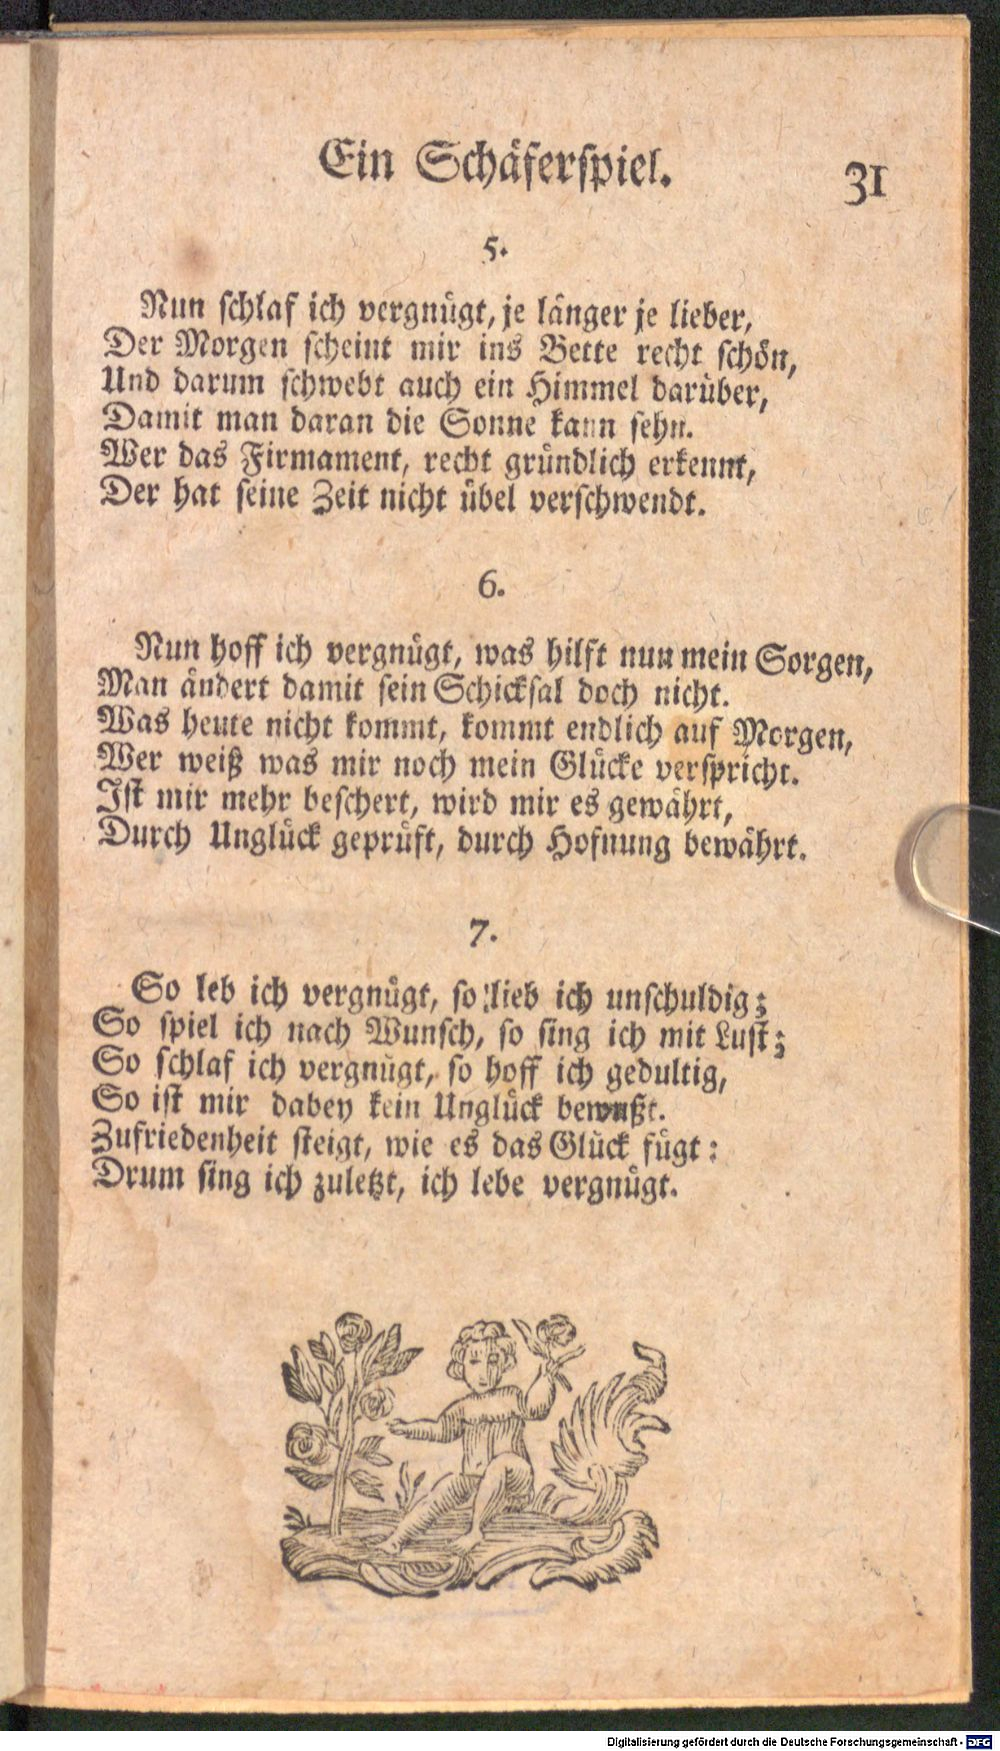 Ein Schäferspiel.
31
5.
Nun schlaf ich vergnügt, je länger je lieber,
Der Morgen scheint mir ins Bette recht schön,
Und darum schwebt auch ein Himmel darüber,
Damit man daran die Sonne kann sehn.
Wer das Firmament, recht gründlich erkennt,
Der hat seine Zeit nicht übel verschwendt.
6.
Nun hoff ich vergnügt, was hilft nun mein Sorgen,
Man ändert damit sein Schicksal doch nicht.
Was heute nicht kommt, kommt endlich auf Morgen,
Wer weiß was mir noch mein Glücke verspricht.
Ist mir mehr beschert, wird mir es gewährt,
Durch Unglück geprüft, durch Hofnung bewährt.
7.
So leb ich vergnügt, so lieb ich unschuldig;
So spiel ich nach Wunsch, so sing ich mit Lust;
So schlaf ich vergnügt, so hoff ich gedultig,
So ist mir dabey kein Unglück bewußt.
Zufriedenheit steigt, wie es das Glück fügt:
Drum sing ich zuletzt, ich lebe vergnügt.
Digitalisierung gefördert durch die Deutsche Forschungsgemeinschaft - DFG